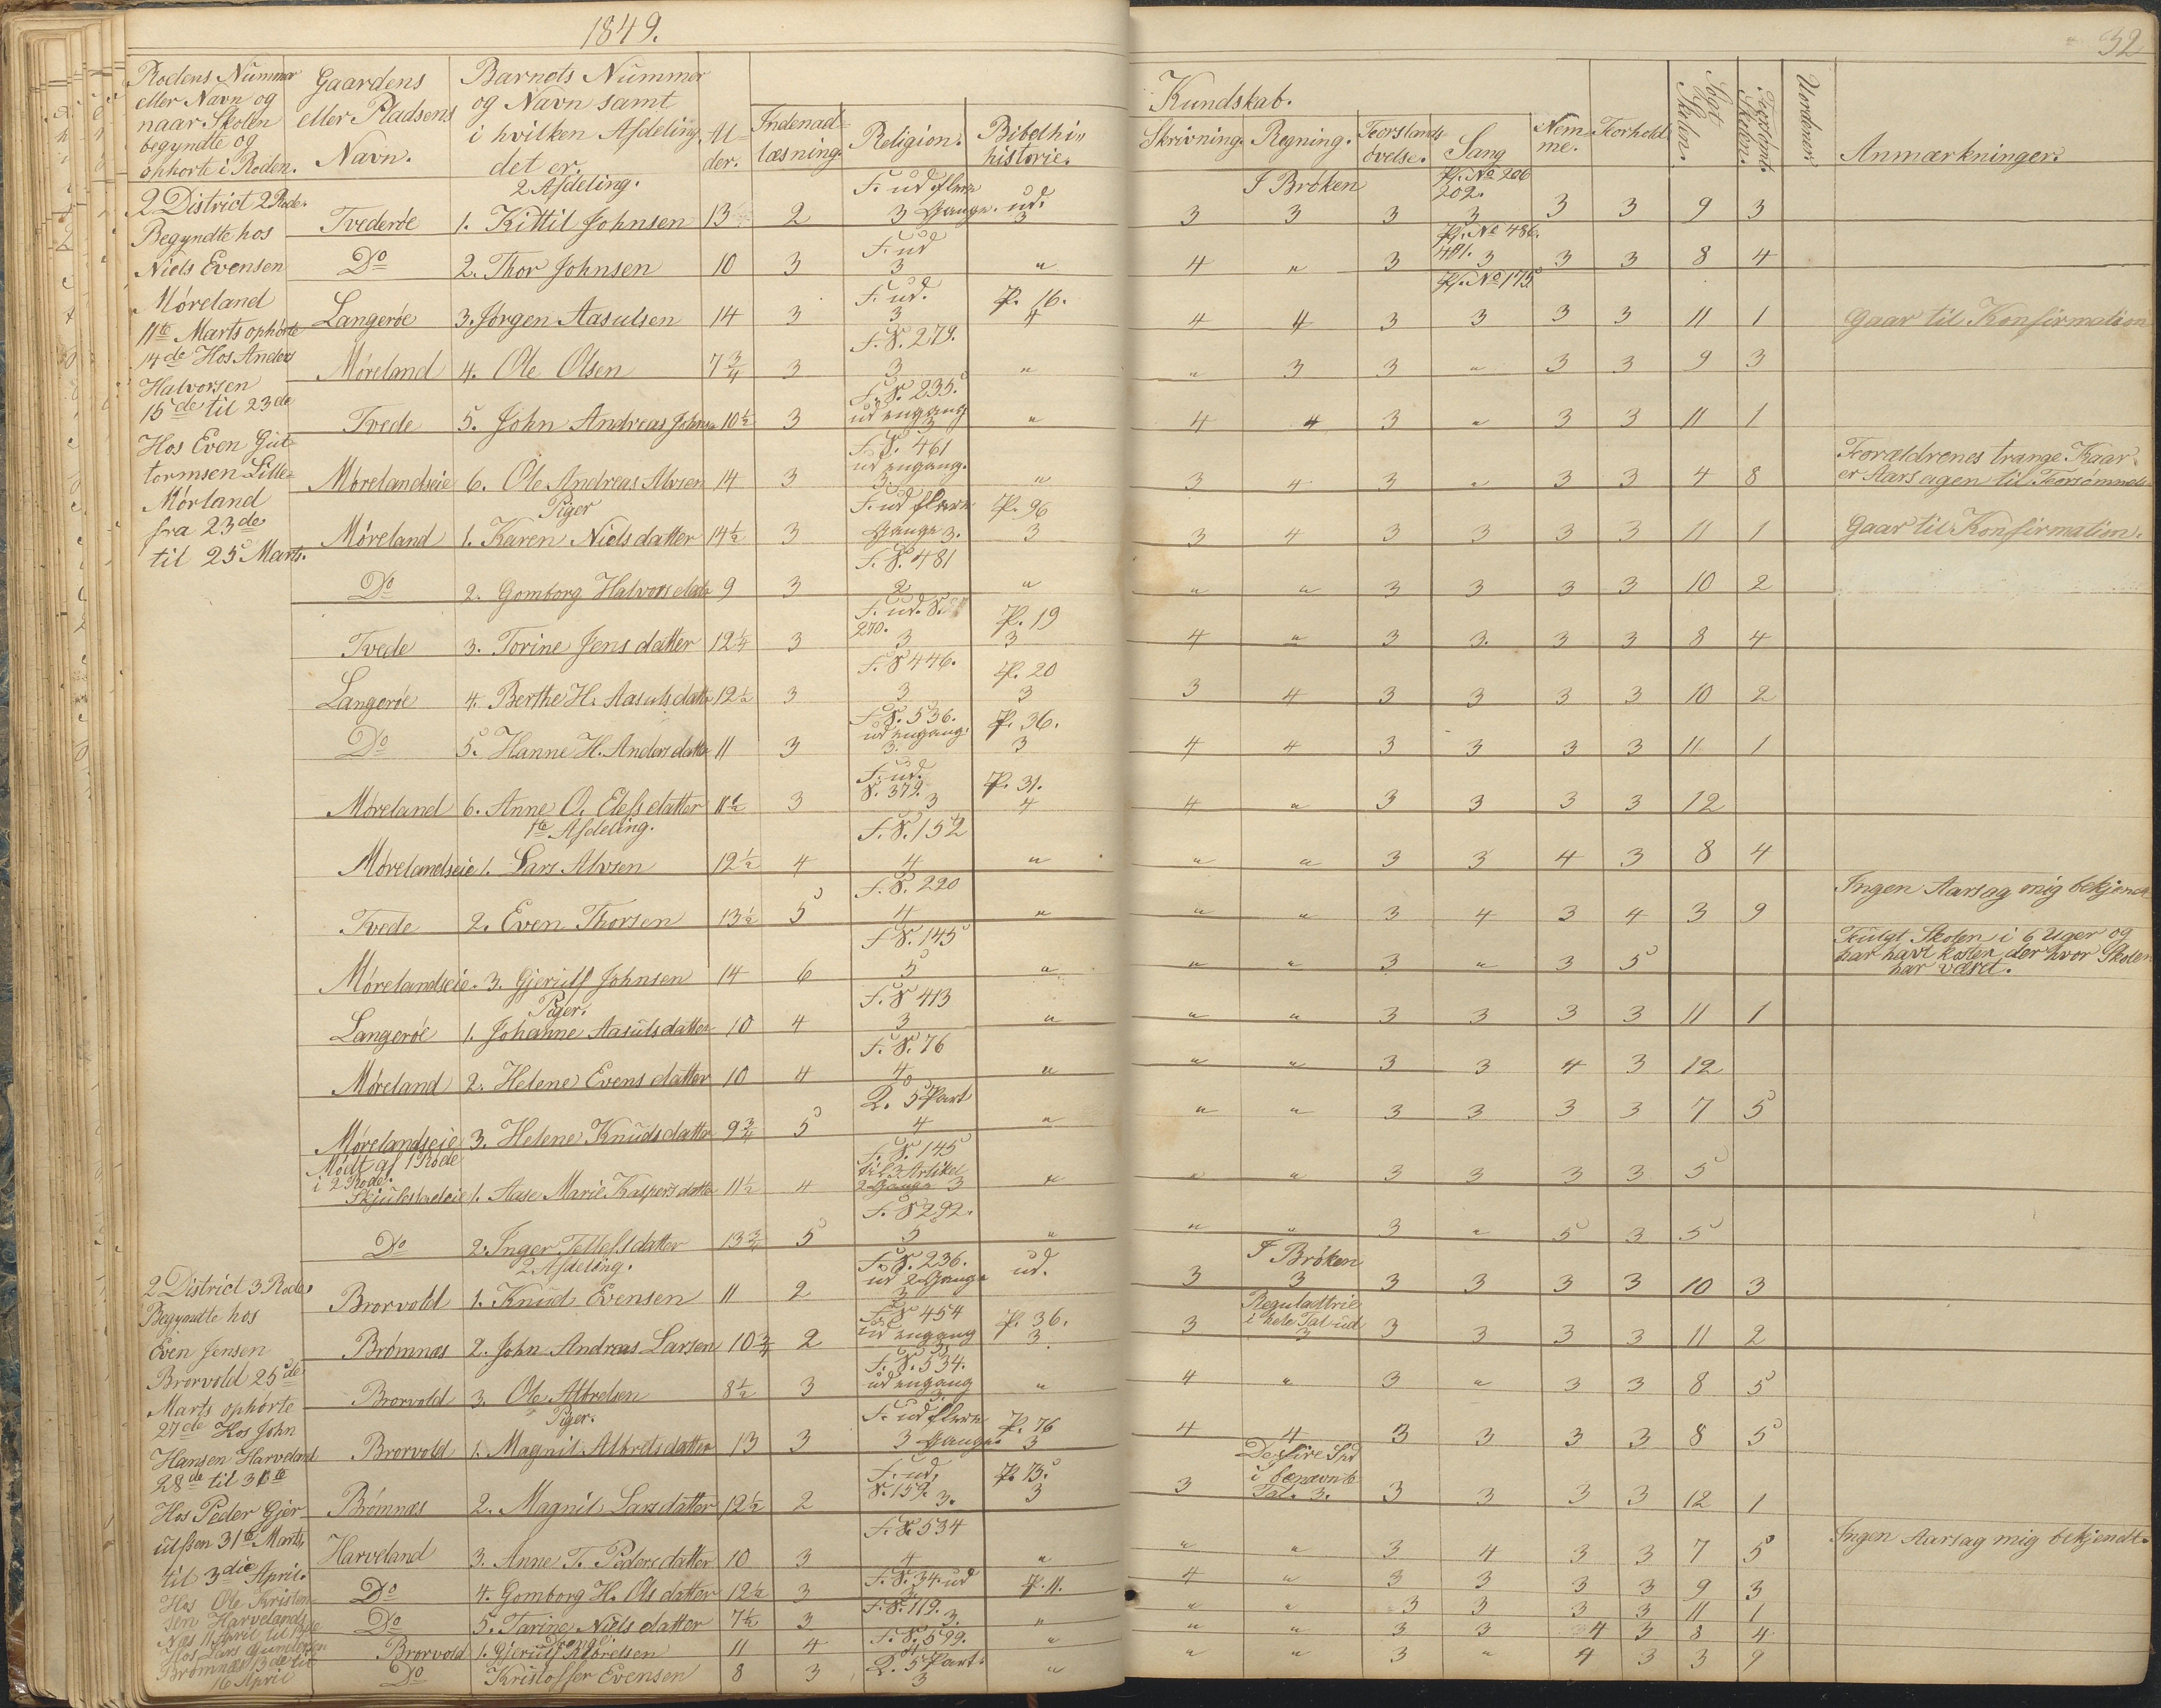 1849.
32
Rodens Nummer eller Navn og naar Skolen begyndte og ophørte i Roden.
Gaardens eller Pladsens Navn.
Barnets Nummer og Navn samt i hvilken Afdeling det er.
Al-der.
Indenad-læsning.
Religion.
Bibelhi-historie.
Kundskab.
Skrivning.
Regning.
Forstands-øvelse.
Sang
Nem-me.
Forhold
Søgt Skolen.
Forsømt Skolen.
Uordener
Anmærkninger.
2 District 2 Rode.
Begyndte hos
Niels Evensen
Møreland
11te Marts ophørte
14de Hos Anders
Halvorsen
15de til 23de
Hos Even Gut-
tormsen Lille-
Mørland
fra 23de
til 25 Marts.
2 Afdeling.
Tvederøe 1. Kittil Johnsen 13 2 F. ud flere 3 Gange. ud. 3 3 I Brøken 3 3 Ps. No 206 202. 3 3 3 9 3
Do 2. Thor Johnsen 10 3 F. ud 3 " 4 " 3 Ps. No 486. 491. 3 3 3 8 4
Langerøe 3. Jørgen Aasulsen 14 3 F. ud. 3 P. 16. 4 4 4 3 Ps. No 175 3 3 3 11 1 Gaar til Konfirmation
Møreland 4. Ole Olsen 7 3/4 3 F. S. 279. 3 " " 3 3 " 3 3 9 3
Tvede 5. John Andreas Johnsen 10 1/2 3 F. S. 235. ud engang 3 " 4 4 3 " 3 3 11 1
Mørelandseie 6. Ole Andreas Alvsen 14 3 F. S. 461 ud engang. 3 " 3 4 3 " 3 3 4 8 Forældrenes trange Kaar er Aarsagen til Forsømmels
Piger
Møreland 1. Karen Nielsdatter 14 1/2 3 F. ud flere Gange 3. P. 96 3 3 4 3 3 3 3 11 1 Gaar til Konfirmation.
Do 2. Gomborg Halvorsdatter 9 3 F. S. 481 2. " " " 3 3 3 3 10 2
Tvede 3. Torine Jensdatter 12 1/4 3 F. ud. S. 270. 3 P. 19 3 4 " 3 3. 3 3 8 4
Langerøe 4. Berthe H. Aasulsdatter 12 1/2 3 F. S 446. 3 P. 20 3 3 4 3 3 3 3 10 2
Do 5. Hanne H. Andersdatter 11 3 F. S. 536. ud engang. 3. P. 36. 3 4 4 3 3 3 3 11 1
Møreland 6. Anne O. Elefsdatter 11 1/2 3 F. ud. S. 379. 3 P. 31. 4 4 " 3 3 3 3 12
1te Afdeling.
Mørelandseie 1. Lars Alvsen 12 1/2 4 F. S. 152 4 " " " 3 3 4 3 8 4
Tvede 2. Even Thorsen 13 1/2 5 F. S. 220 4 " " " 3 4 3 4 3 9 Ingen Aarsag mig bekjendt
Mørelandseie. 3. Gjerulf Johnsen 14 6 F. S. 145 5 " " " 3 " 3 5 Fulgt Skolen i 6 Uger og har havt kosten der hvor Skolen har været.
Piger.
Langerøe 1. Johanne Aasulsdatter 10 4 F. S 413 3 " " " 3 3 3 3 11 1
Møreland 2. Helene Evensdatter 10 4 F. S. 76 4 " " " 3 3 4 3 12
Mørelandseie 3. Helene Knudsdatter 9 3/4 5 L. 5 Part 4 " " " 3 3 3 3 7 5
Mødt af 1 Rode i 2 Rode.
Skjulestadeie 1. Aase Marie Kaspersdatter 11 1/2 4 F. S. 145 til 3 Artikel 2 Gange 3 " " " 3 3 3 3 5
Do 2. Inger Tellefsdatter 13 3/4 5 F. S 292. 5 " " " 3 " 5 3 5
2 District 3 Rode
Begyndte hos
Even Jensen
Brorvold 25de
Marts ophørte
27de Hos John
Hansen Harveland
28de til 31te
Hos Peder Gjer-
ulfsen 31te Marts
til 3die April.
Hos Ole Kristen-
sen Harvelands
Næs 11 April til 13de
Hos Lars Gundersen
Brømnæs 13de til
16 April
2 Afdeling.
Brorvold 1. Knud Evensen 11 2 F. S. 236. ud 2 Gange 3 ud. 3 I Brøken 3 3 3 3 3 10 3
Brømnæs 2. John Andreas Larsen 10 3/4 2 F. S 454 ud engang 3 P. 36. 3 3 Reguladtrie i hele Tal ud 3 3 3 3 3 11 2
Brorvold 3. Ole Albretsen 8 1/2 3 F. S. 534. ud engang 3. " 4 " 3 " 3 3 8 5
Piger.
Brorvold 1. Magnil Albretsdatter 13 3 F. ud flere 3 Gange. P. 76 3 4 4 3 3 3 3 8 5
Brømnæs 2. Magnil Larsdatter 12 1/2 2 F. ud, S. 159. 3. P. 73. 3 3 De fire Spe i benævnte Tal. 3. 3 3 3 3 12 1
Harveland 3. Anne T. Pedersdatter 10 3 F. S. 534 4 " " " 3 4 3 3 7 5 Ingen Aarsag mig bekjendt.
Do 4. Gomborg H. Olsdatter 12 1/2 3 F. S. 34. ud 3 P. 11. 4 " 3 3 3 3 9 3
Do 5. Tarine Nielsdatter 7 1/2 3 F. S. 119. 3. " " " 3 3 3 3 11 1
Drenge.
Brorvold 1. Gjerulf Albretsen 11 4 F. S. 599. 4 " " " 3 3 4 3 8 4
Do Kristoffer Evensen 8 3 L. 5 Part. 3 " " " 3 " 4 3 3 9